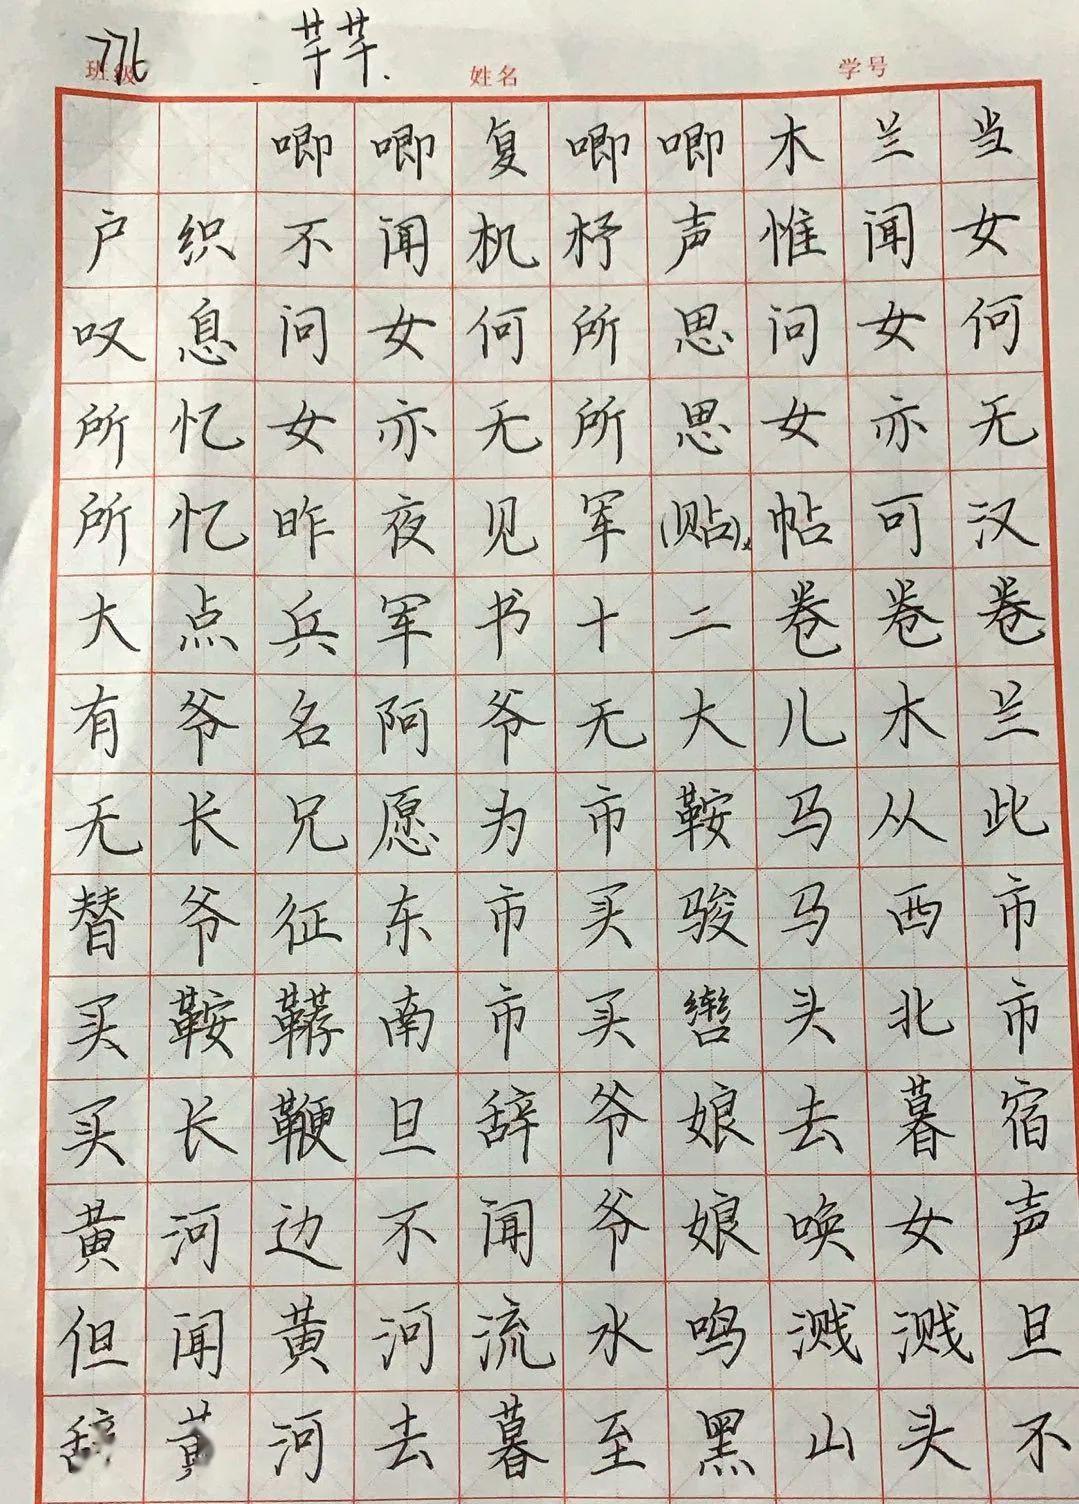 班级 776 芊芊. 姓名 学号
唧唧复唧唧木兰当
户织不闻机杼声惟闻女
叹息问女何所思问女何
所忆女亦无所思女亦无
所忆昨夜见军(贴)x帖可汉
大点兵军书十二卷卷卷
有爷名阿爷无大儿木兰
无长兄愿为市鞍马从此
替爷征东市买骏马西市
买鞍鞯南市买辔头北市
买长鞭旦辞爷娘去暮宿
黄河边不闻爷娘唤女声
但闻黄河流水鸣溅溅旦
辞黄河去暮至黑山头不